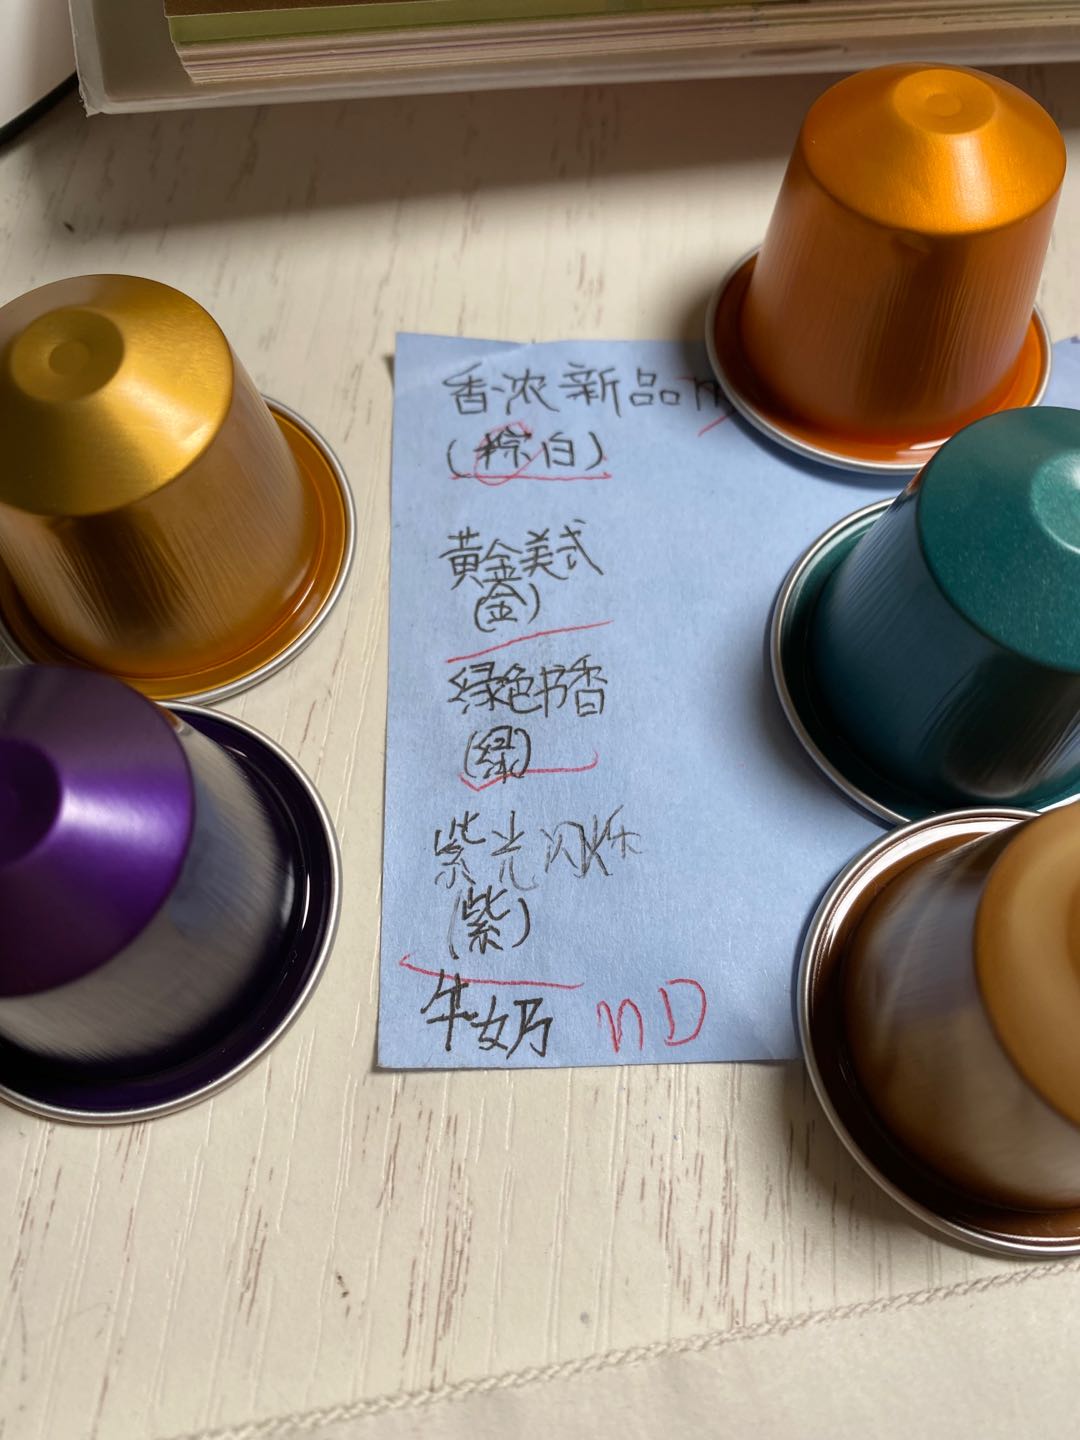 香浓新品
(棕白)
黄金美式
(金)
绿色书香
(绿)
紫光闪烁
(紫)
牛奶 nD